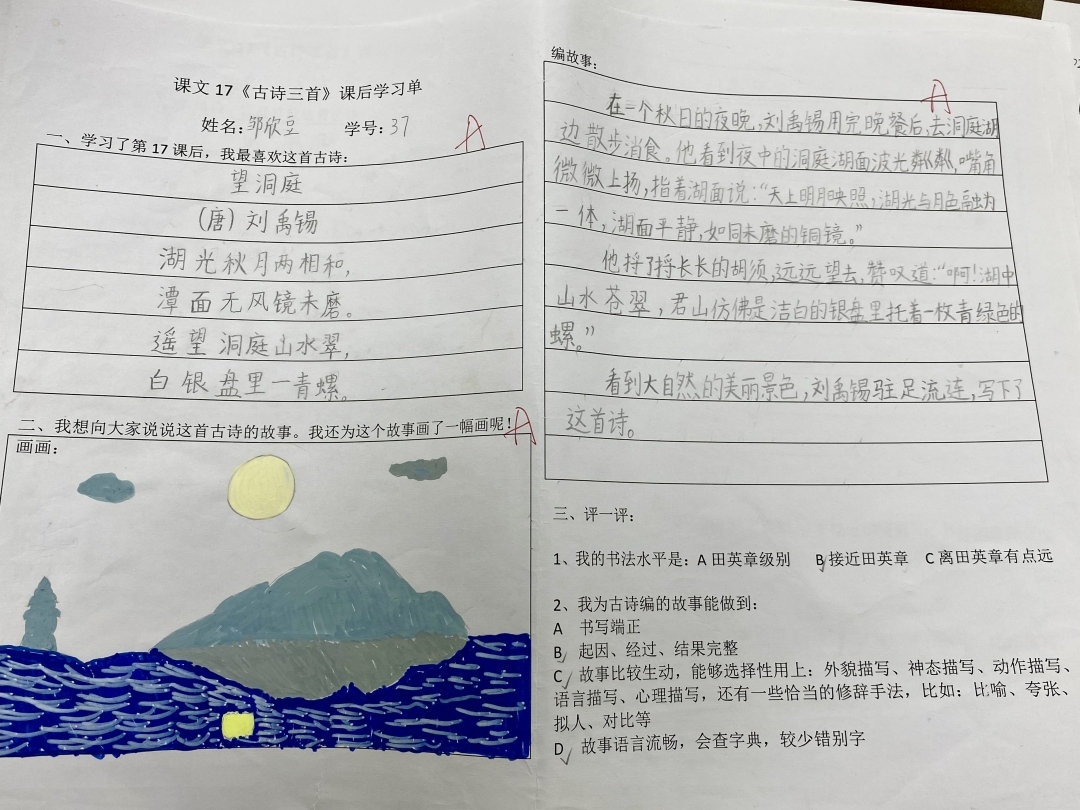 课文17《古诗三首》课后学习单
姓名：邹欣豆 学号：37
一、学习了第17课后，我最喜欢这首古诗：
A
望洞庭
（唐）刘禹锡
湖光秋月两相和，
潭面无风镜未磨。
遥望洞庭山水翠，
白银盘里一青螺。
二、我想向大家说说这首古诗的故事。我还为这个故事画了一幅画呢！
A
画画：
编故事：
A
在一个秋日的夜晚，刘禹锡用完晚餐后，去洞庭湖
边散步消食。他看到夜中的洞庭湖面波光粼粼，嘴角
微微上扬，指着湖面说：“天上明月映照，湖光与月色融为
一体，湖面平静，如同未磨的铜镜。”
他捋了捋长长的胡须，远远望去，赞叹道：“啊！湖中
山水苍翠，君山仿佛是洁白的银盘里托着一枚青绿色的
螺。”
看到大自然的美丽景色，刘禹锡驻足流连，写下了
这首诗。
三、评一评：
1、我的书法水平是：A 田英章级别 B 接近田英章 C 离田英章有点远
2、我为古诗编的故事能做到：
A 书写端正
B 起因、经过、结果完整
C 故事比较生动，能够选择性用上：外貌描写、神态描写、动作描写、
语言描写、心理描写，还有一些恰当的修辞手法，比如：比喻、夸张、
拟人、对比等
D 故事语言流畅，会查字典，较少错别字